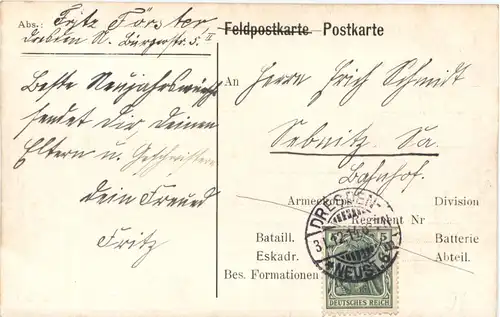 Abs.: Fritz Förster
Dresden N. Bürgerstr. 5/II
Beste Neujahrswünsche
sendet Dir Deinen
Eltern u. Geschwistern
Dein Freund
Fritz
Feldpostkarte. Postkarte
An Herrn Erich Schmidt
Sebnitz. Sa.
Bahnhof.
Armeekorps Division
Regiment Nr
Bataill. Batterie
Eskadr. Abteil.
Bes. Formationen
DRESDEN-
NEUST.
5
DEUTSCHES REICH